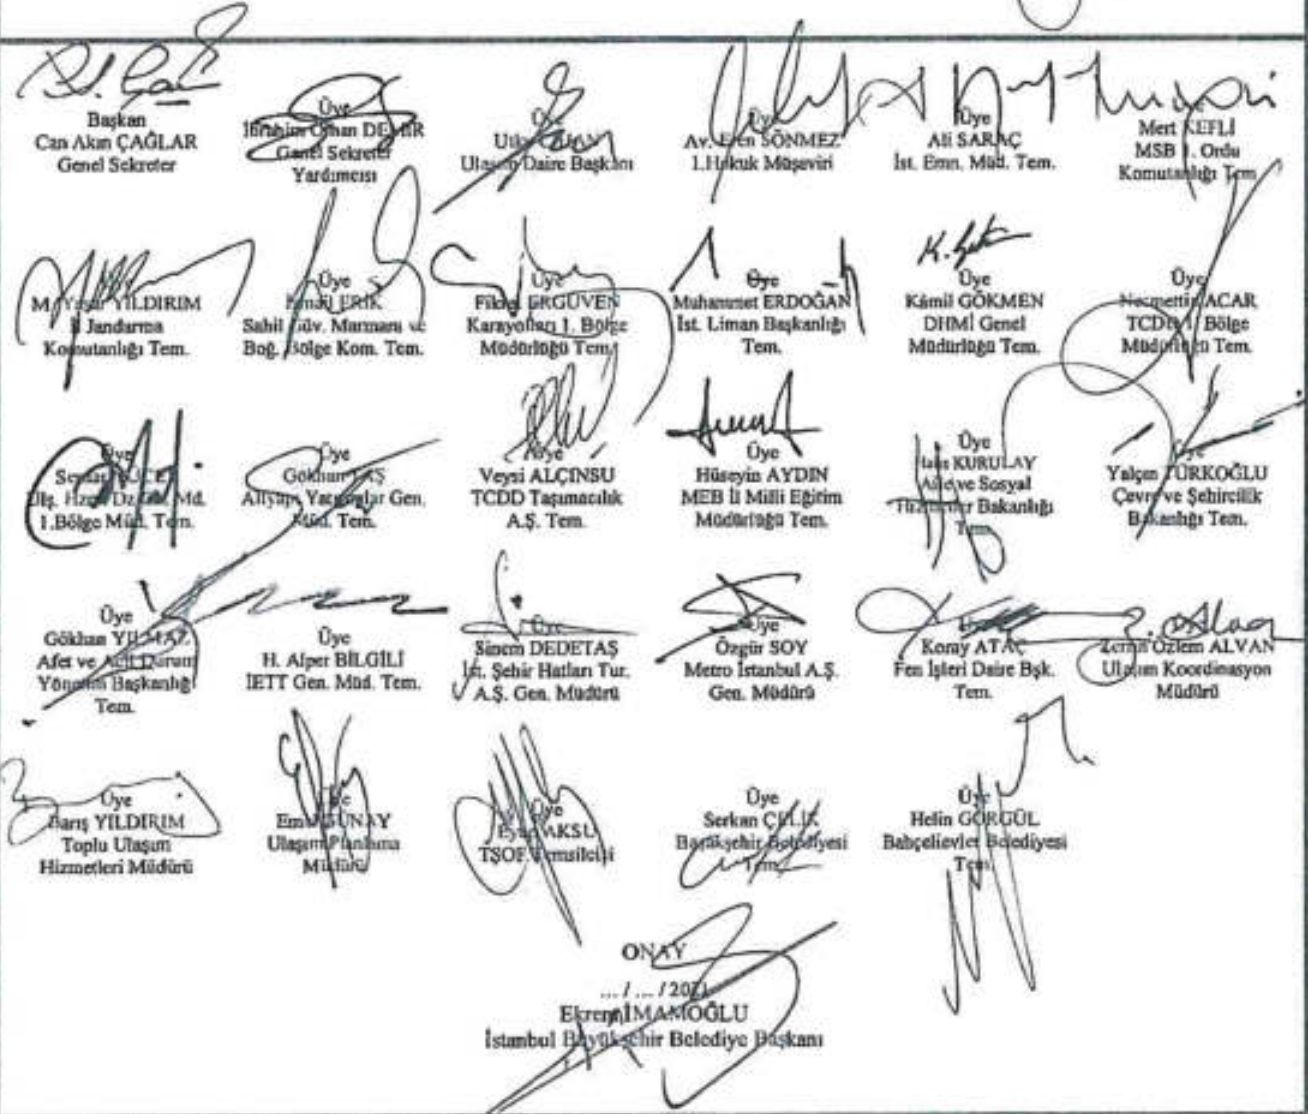 Başkan
Can Akın ÇAĞLAR
Genel Sekreter
Üye
İbrahim Orhan DEMİR
Genel Sekreter
Yardımcısı
Üye
Ulaşım Daire Başkanı
Üye
Av. Eren SÖNMEZ
1.Hukuk Müşaviri
Üye
Ali SARAÇ
İst. Emn. Müd. Tem.
Mert KEFLİ
MSB 1. Ordu
Komutanlığı Tem.
YILDIRIM
İl Jandarma
Komutanlığı Tem.
Üye
İsmail ERİK
Sahil Güv. Marmara ve
Boğ. Bölge Kom. Tem.
Üye
Fikret ERGÜVEN
Karayolları 1. Bölge
Müdürlüğü Tem.
Üye
Muhammet ERDOĞAN
İst. Liman Başkanlığı
Tem.
K.
Üye
Kâmil GÖKMEN
DHMİ Genel
Müdürlüğü Tem.
Üye
Necmettin ACAR
TCDD 1. Bölge
Müdürlüğü Tem.
Üye
1.Bölge Müd. Tem.
Üye
Gökhan TAŞ
Altyapı Yatırımlar Gen.
Müd. Tem.
Üye
Veysi ALÇINSU
TCDD Taşımacılık
A.Ş. Tem.
Üye
Hüseyin AYDIN
MEB İl Milli Eğitim
Müdürlüğü Tem.
Üye
KURULAY
Aile ve Sosyal
Hizmetler Bakanlığı
Tem.
Üye
Yalçın TÜRKOĞLU
Çevre ve Şehircilik
Bakanlığı Tem.
Üye
Gökhan YILMAZ
Afet ve Acil Durum
Yönetim Başkanlığı
Tem.
Üye
H. Alper BİLGİLİ
İETT Gen. Müd. Tem.
Üye
Sinem DEDETAŞ
İst. Şehir Hatları Tur.
A.Ş. Gen. Müdürü
Üye
Özgür SOY
Metro İstanbul A.Ş.
Gen. Müdürü
Üye
Koray ATAÇ
Fen İşleri Daire Bşk.
Tem.
Özlem ALVAN
Ulaşım Koordinasyon
Müdürü
Üye
Barış YILDIRIM
Toplu Ulaşım
Hizmetleri Müdürü
Üye
GÜNAY
Ulaşım Planlama
Müdürü
Üye
Eyüp AKSU
TŞOF Temsilcisi
Üye
Serkan ÇELİK
Başakşehir Belediyesi
Tem.
Üye
Helin GÖRGÜL
Bahçelievler Belediyesi
Tem.
ONAY
... / ... / 2021
Ekrem İMAMOĞLU
İstanbul Büyükşehir Belediye Başkanı